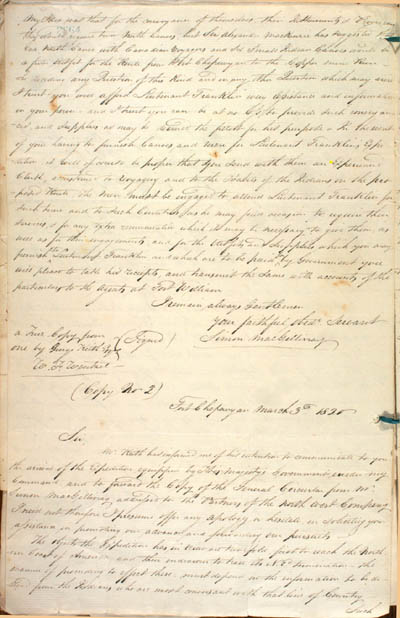 My Idea was that for the conveyance of themselves, their Instruments &
they should procure two North Canoes, but Sir Alexander Mackenzie has suggested that
One North Canoe with Canadian Voyagers and Six Small Indian Canoes would be
a fit for the Route from Fort Chepewyan to the Copper mine River
the of this Kind and in any other Position which may seem
I trust you will afford Lieutenant Franklin your assistance and information
in your power and I trust you can be at no loss to provide such conveyan-
ces, and Supplies as may be best fitted for his purposes. In the event
of your having to furnish Canoes and men for Lieutenant Franklin's Expe-
dition it will of course be proper that you send with them an Experienced
Clerk, accustomed to Voyaging and to the Habits of the Indians on the pro-
posed Route, the Men must be engaged to attend Lieutenant Franklin for
such time and to such Countries as he may find occasion to require their
Services, & for any extra remuneration which it may be necessary to give them, as
well as for their engagements and for the Articles and Supplies which you may
furnish Lieutenant Franklin and which are to be paid by Government you
will please to take his receipts, and transmit the Same with accounts of the
particulars to the Agents at Fort William
I remain, always Gentlemen
your faithful Obed. Servant
(Signed)
Simon MacGillivray
a True Copy from
one by George Keith Esqr
W. F. Wentzel
(Copy No 2)
Fort Chepewyan March 3d 1820
Sir,
Mr. Keith has informed me of his intention to communicate to you
the arrival of the Expedition equipped by His Majesty's Government under my
Command, and to forward the Copy of the General Circular from Mr.
Simon MacGillivray addressed to the Partners of the North West Company
I need not therefore I presume offer any apology or hesitate in soliciting your
assistance in promoting our advance and forwarding our pursuits
The object of the Expedition is first to reach the North-
ern Coast of America and then endeavour to trace its N.E. termination, the
manner of proceeding to effect these must depend on the information to be de-
rived from the Indians who are most conversant with that line of Country
Such